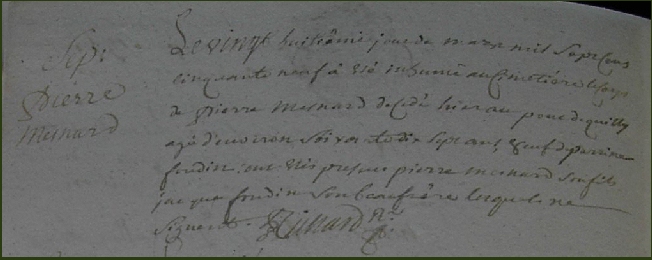 Sep:
Pierre
Meinard
Le vingt huiteâme jour de mars mil sept cens
cinquante neuf à été inhumé au Cimetiére le corps
de pierre Meinard decédé hier au pont de quilly
agé d'environ soixante dix sept ans, veuf de perrine
foudin, ont étés presens pierre meinard son fils,
jacque foudin son beaufrére lesquels ne
signent.